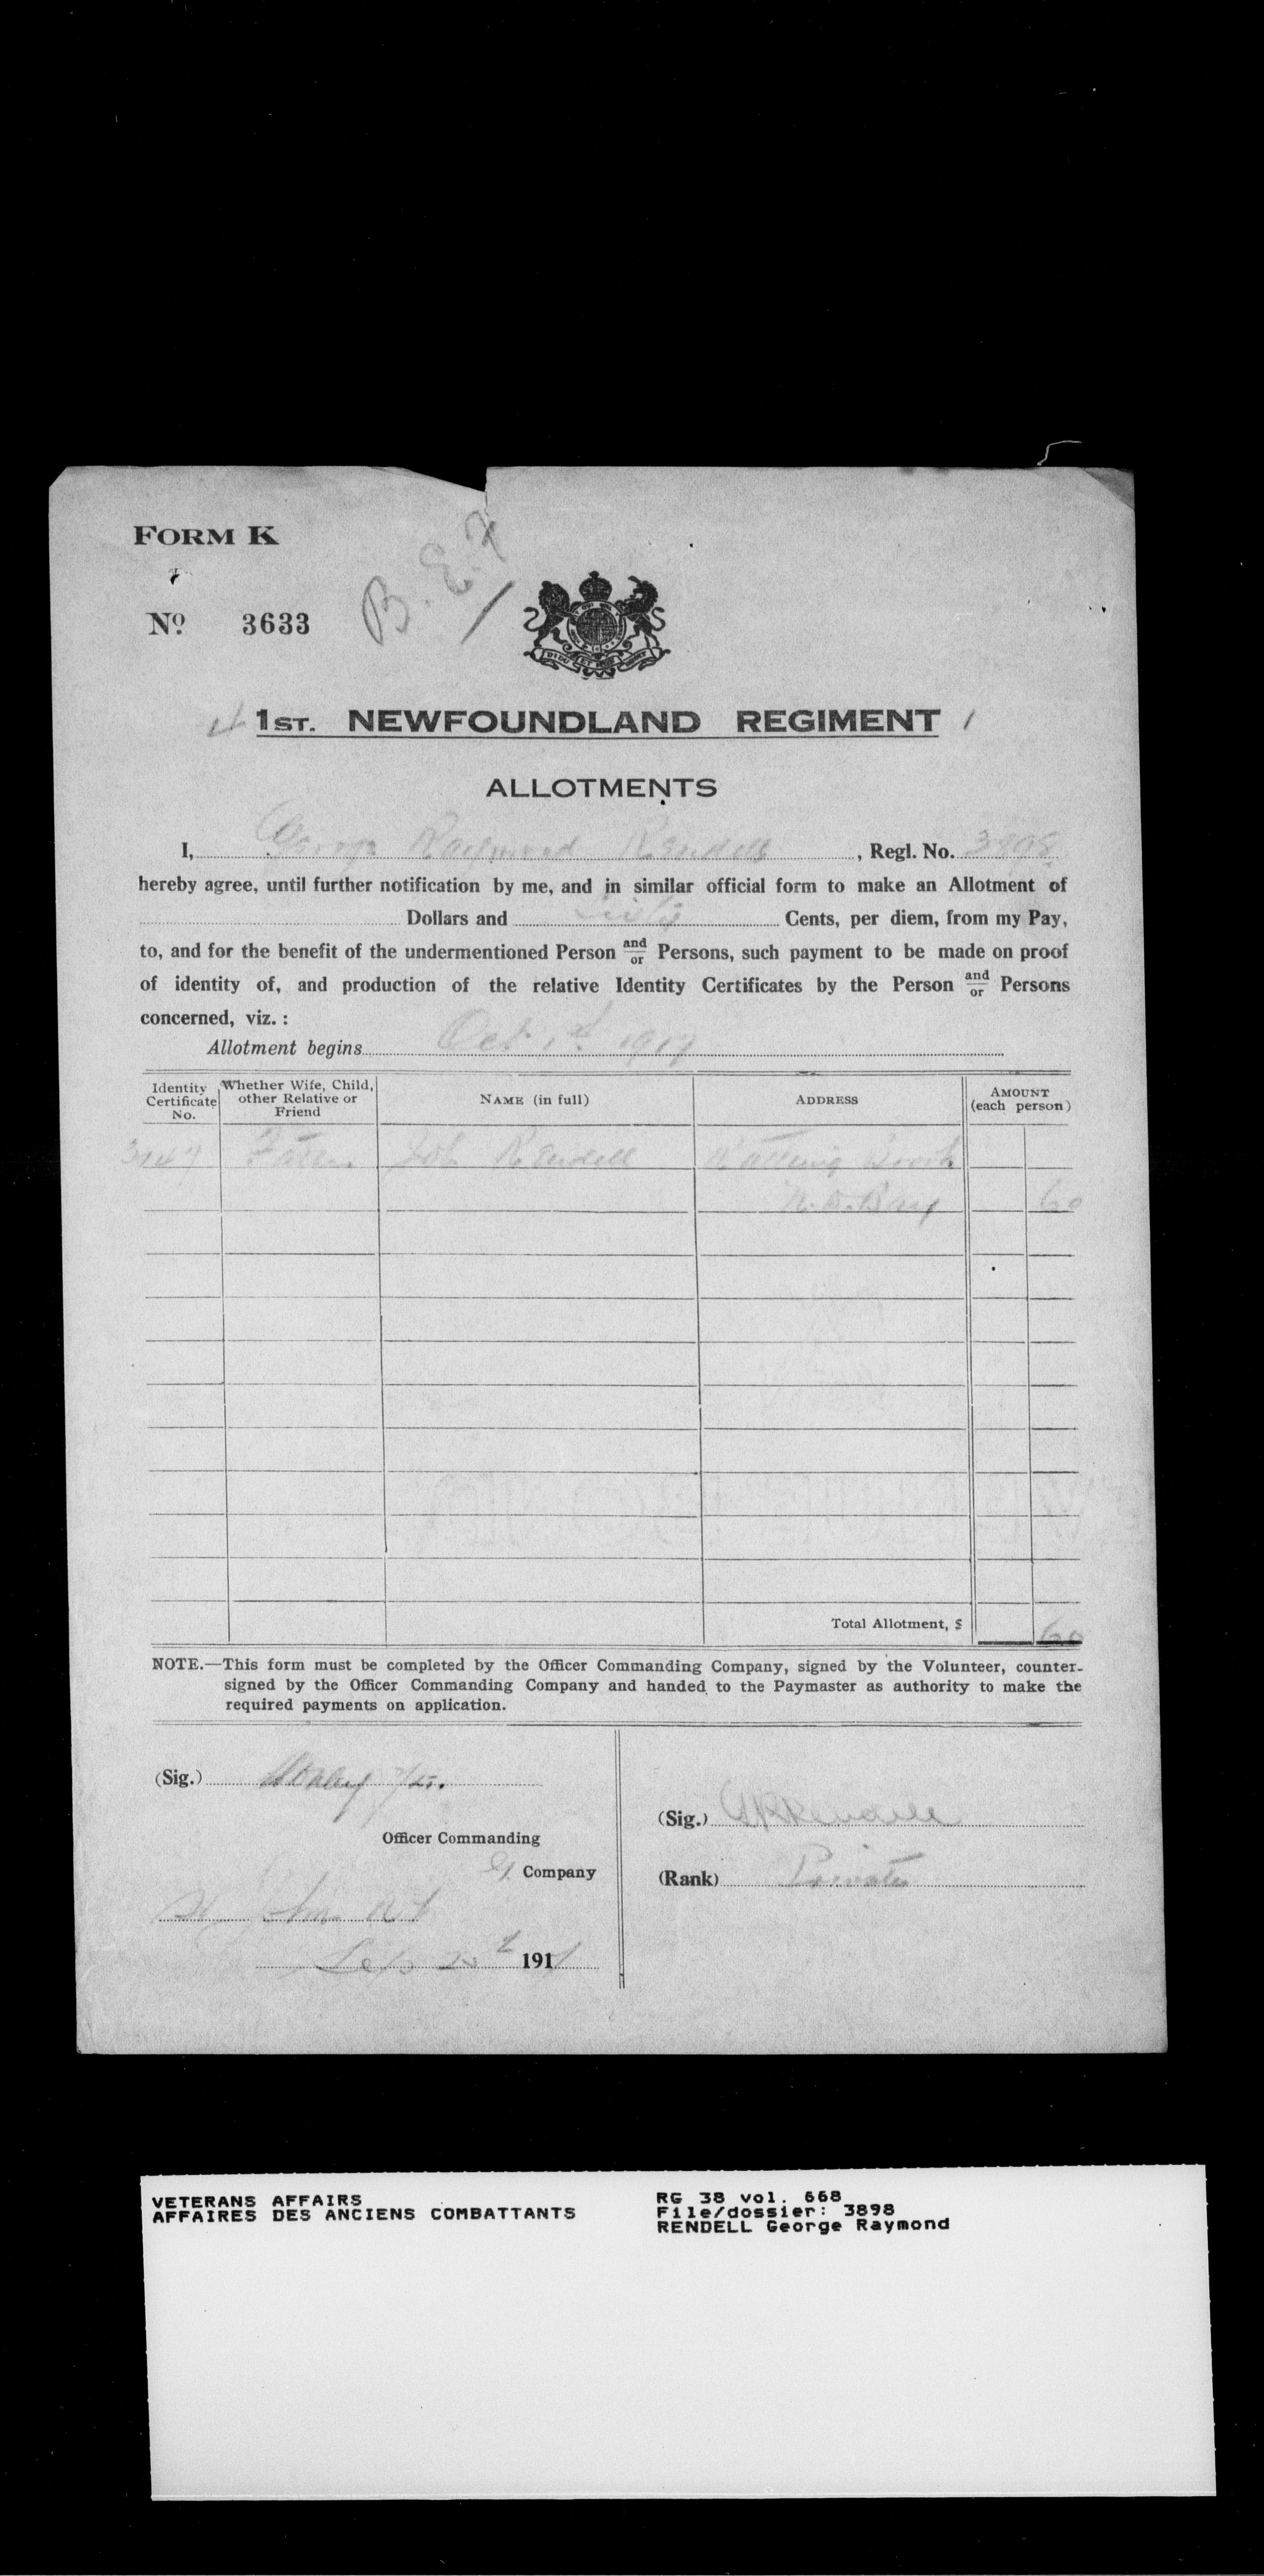 FORM K
B.E.F
No. 3633
DIEU ET MON DROIT
1ST. NEWFOUNDLAND REGIMENT
ALLOTMENTS
I, George Raymond Rendell, Regl. No. 3898
hereby agree, until further notification by me, and in similar official form to make an Allotment of
Dollars and Sixty Cents, per diem, from my Pay,
to, and for the benefit of the undermentioned Person and/or Persons, such payment to be made on proof
of identity of, and production of the relative Identity Certificates by the Person and/or Persons
concerned, viz. :
Allotment begins Oct 1st 1917
Identity Certificate No. Whether Wife, Child, other Relative or Friend NAME (in full) ADDRESS AMOUNT (each person)
3147 Father Job Rendell Rattling Brook
N.D.Bay 60
Total Allotment, $ 60
NOTE.—This form must be completed by the Officer Commanding Company, signed by the Volunteer, counter-
signed by the Officer Commanding Company and handed to the Paymaster as authority to make the
required payments on application.
(Sig.)
Officer Commanding
Company
(Sig.) G R Rendell
(Rank) Private
191
VETERANS AFFAIRS
AFFAIRES DES ANCIENS COMBATTANTS
RG 38 vol. 668
File/dossier: 3898
RENDELL George Raymond